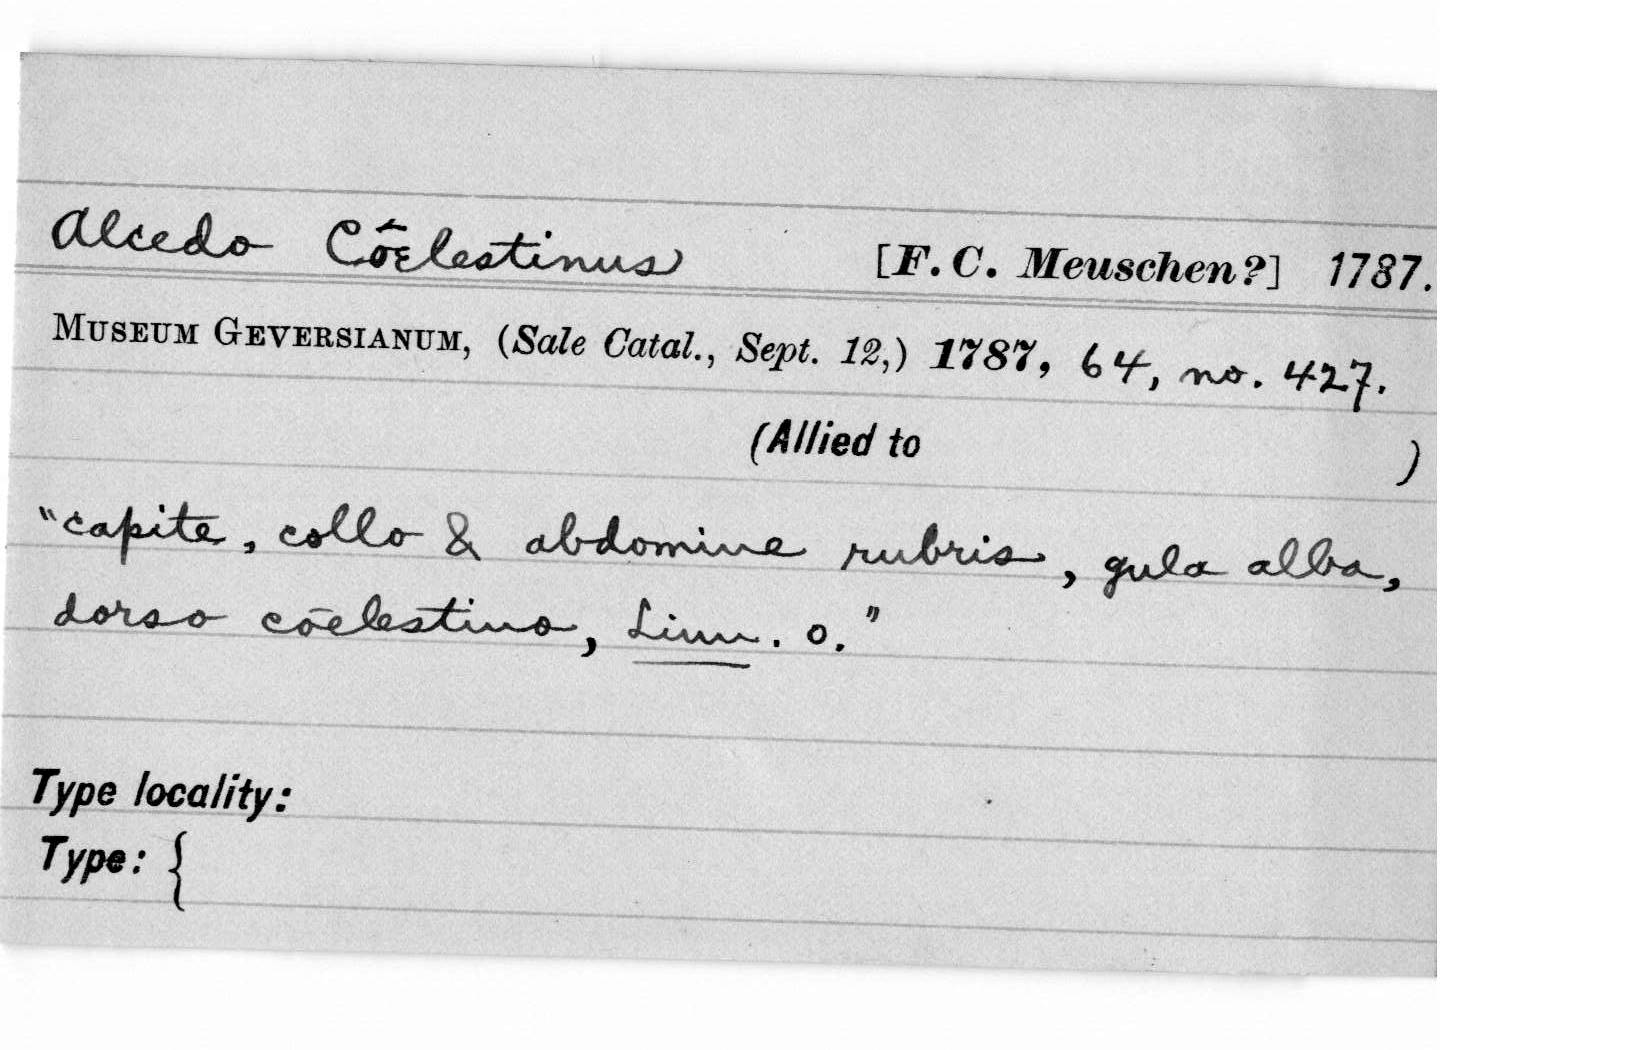 Alcedo Cōelestinus [F. C. Meuschen?] 1787.
MUSEUM GEVERSIANUM, (Sale Catal., Sept. 12,) 1787, 64, no. 427.
(Allied to )
"capite, collo & abdomine rubris, gula alba,
dorso cōelestino, Linn. o."
Type locality:
Type: {